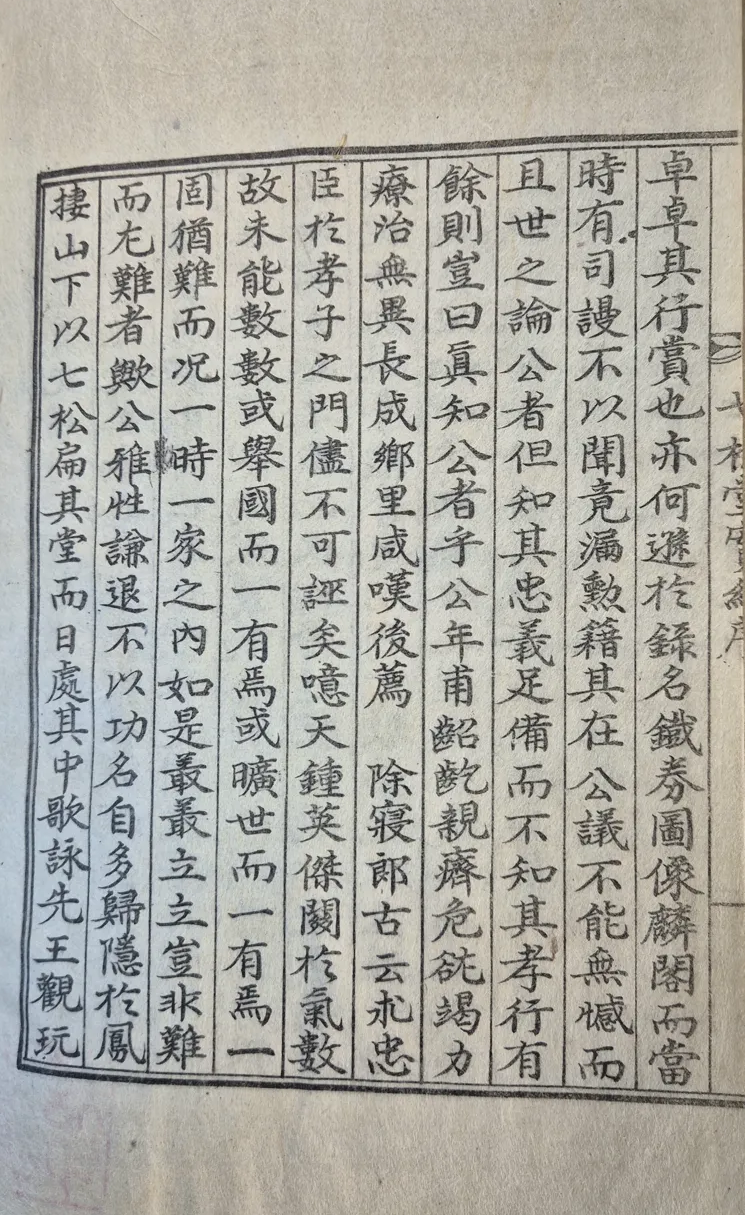 七松堂實紀序
卓卓其行賞也亦何遜於錄名鐵券圖像麟閣而當
時有司謾不以聞竟漏勲籍其在公議不能無憾而
且世之論公者但知其忠義足備而不知其孝行有
餘則豈曰眞知公者乎公年甫齠齕親癠危兊竭力
療治無異長成鄉里咸嘆後薦 除寢郎古云求忠
臣於孝子之門儘不可誣矣噫天鍾英傑關於氣數
故未能數數或舉國而一有焉或曠世而一有焉一
固猶難而况一時一家之內如是叢叢立立豈非難
而尢難者歟公雅性謙退不以功名自多歸隱於鳳
捿山下以七松扁其堂而日處其中歌詠先王觀玩